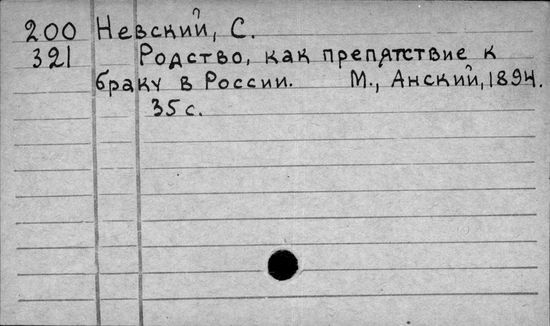 200 Невский, С.
321 Родство, как препятствие к
браку в России. М., Анский, 1894.
35 с.